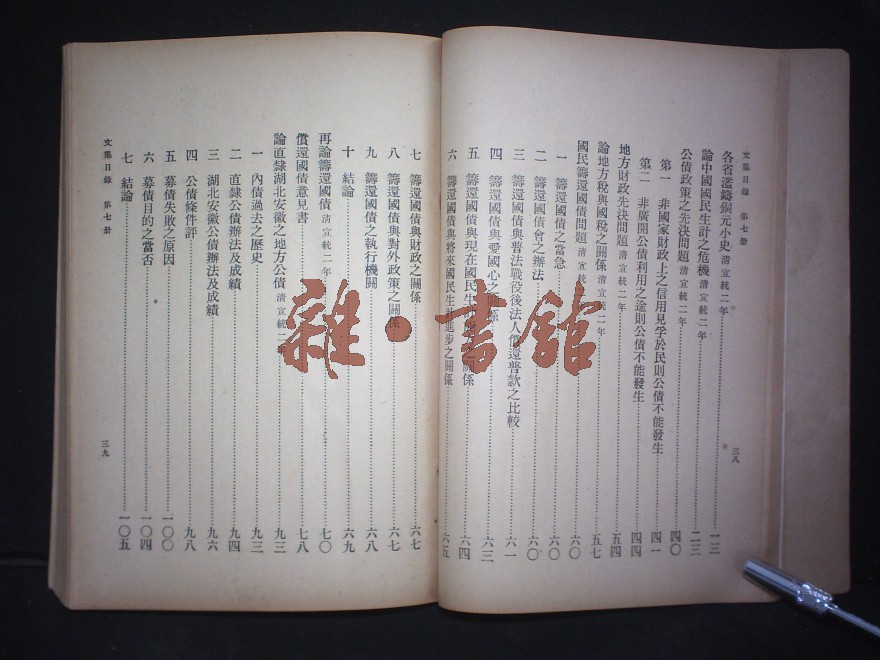 文集目錄 第七册
三八
各省濫鑄銅元小史 清宣統二年 一三
論中國國民生計之危機 清宣統二年 二三
公債政策之先決問題 清宣統二年 四〇
第一 非國家財政上之信用見孚於民則公債不能發生 四一
第二 非廣開公債利用之途則公債不能發生 四四
地方財政先決問題 清宣統二年 五四
論地方稅與國稅之關係 清宣統二年 五七
國民籌還國債問題 清宣統二年 六〇
一 籌還國債之當急 六〇
二 籌還國債會之辦法 六〇
三 籌還國債與普法戰役後法人償還普款之比較 六一
四 籌還國債與愛國心之關係 六三
五 籌還國債與現在國民生計之關係 六四
六 籌還國債與將來國民生計進步之關係 六五
七 籌還國債與財政之關係 六七
八 籌還國債與對外政策之關係 六七
九 籌還國債之執行機關 六八
十 結論 六九
再論籌還國債 清宣統二年 七〇
償還國債意見書 七八
論直隸湖北安徽之地方公債 清宣統二年 九三
一 內債過去之歷史 九三
二 直隸公債辦法及成績 九四
三 湖北安徽公債辦法及成績 九六
四 公債條件評 九八
五 募債失敗之原因 一〇〇
六 募債目的之當否 一〇四
七 結論 一〇五
文集目錄 第七册
三九
雜·書館